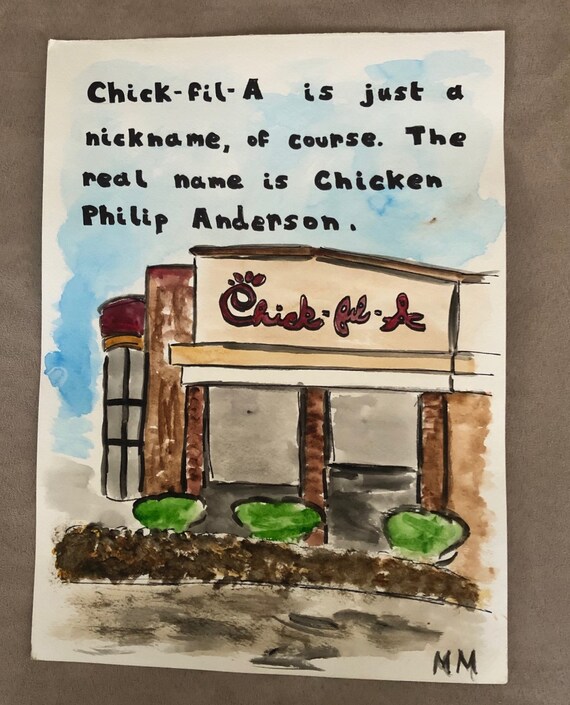 Chick-fil-A is just a
nickname, of course. The
real name is Chicken
Philip Anderson.
Chick-fil-A
MM